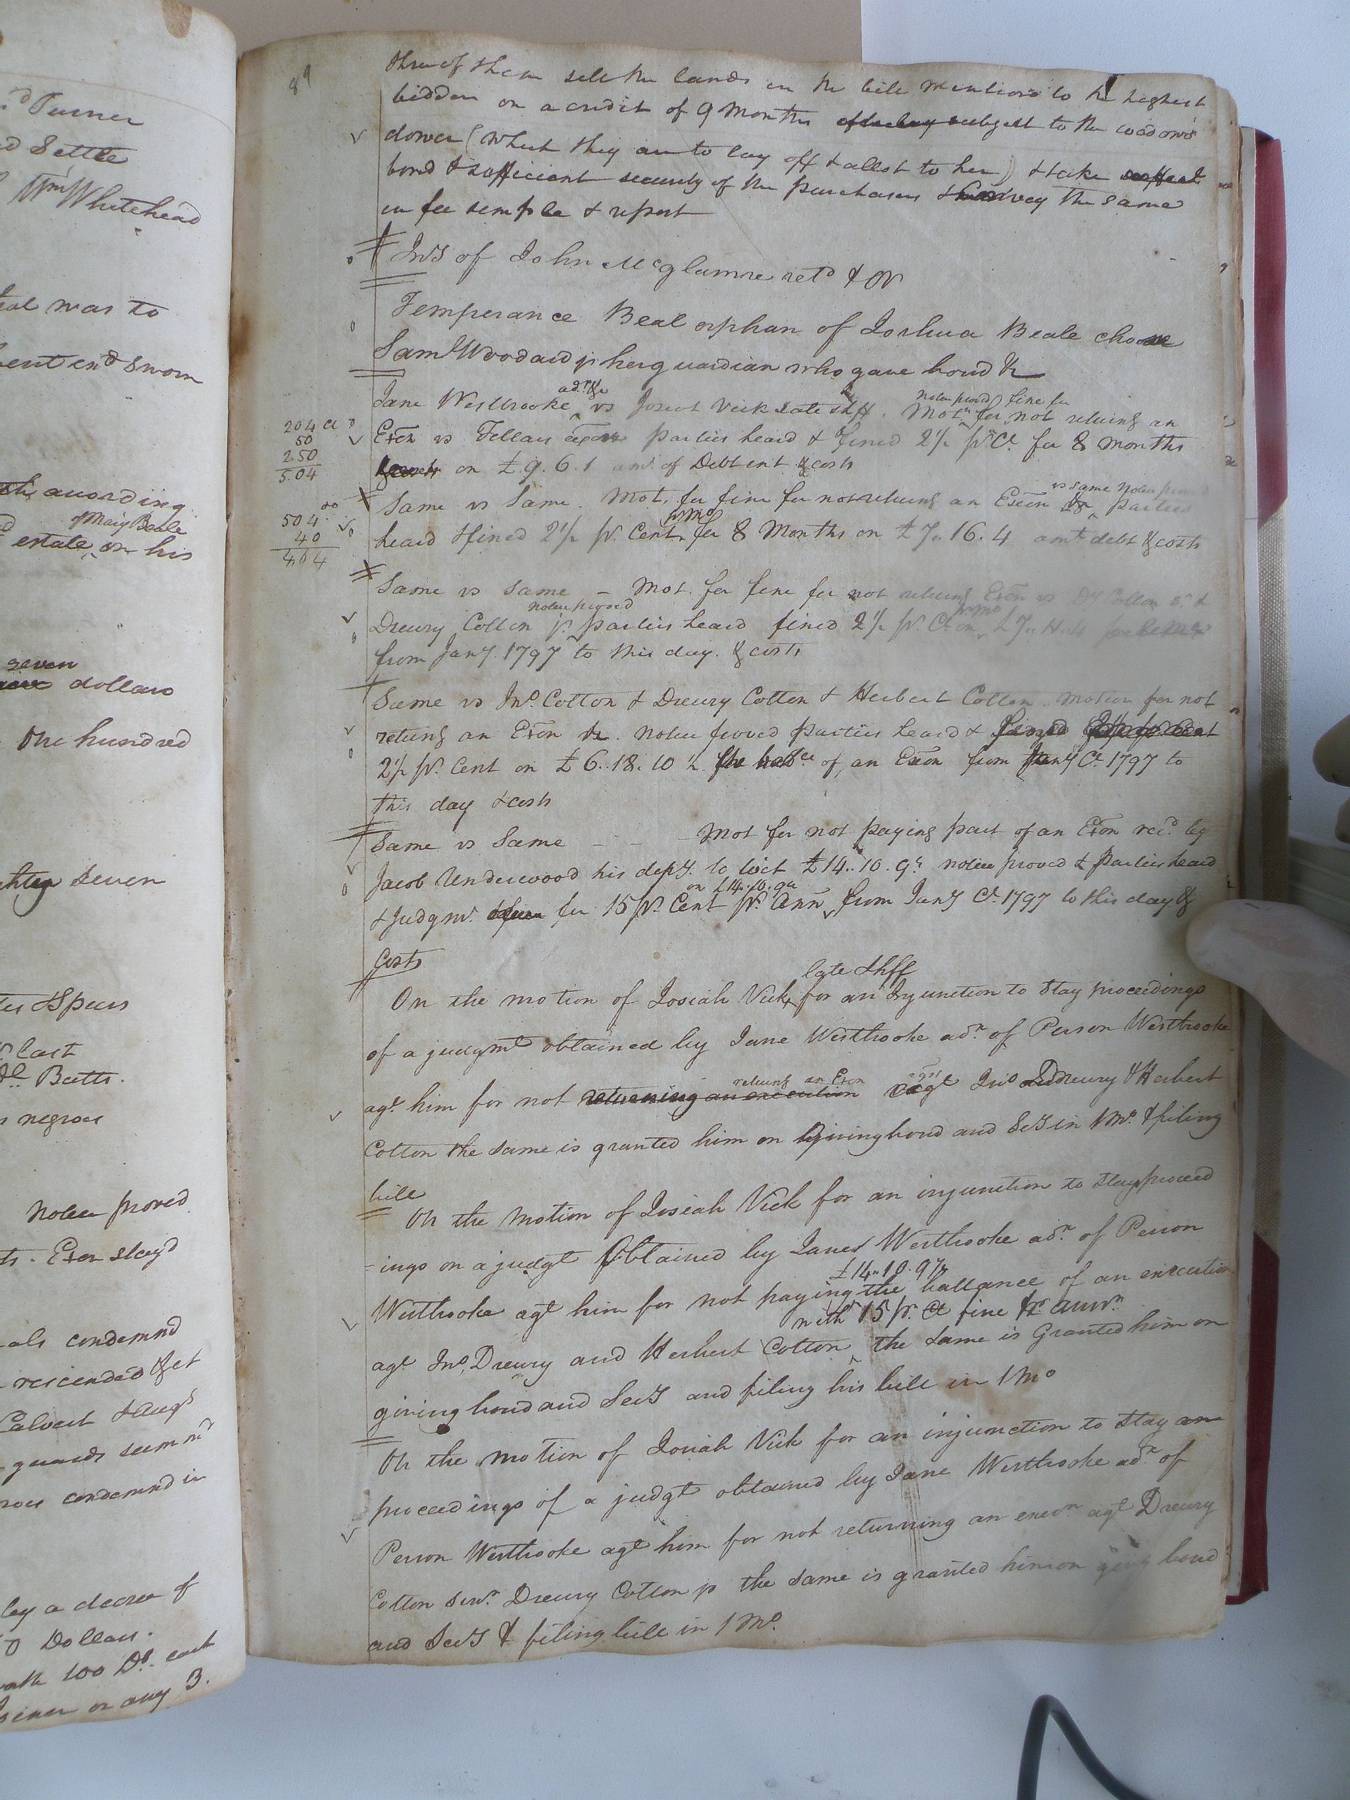 d Turner
d Settle
Wm Whitehead
al was to
ent end Sworn
according
& Mary Beale
estate on his
seven
dollars
One hundred
Seven
& Speers
last
Batts.
negroes
Notice proved
Exon stay'd
als condemnd
rescinded & et
Calvert
guards summd
condemnd in
by a decree of
Dollars.
100 Ds. each
or any 3.
89
three of them sell the lands in the bill mentiond to the highest
bidder on a credit of 9 Months subject to the widows
dower (which they are to lay off & allot to her) & take
bond & sufficient security of the purchasers & convey the same
in fee simple & report
Invy of John McGlamre retd & OR
Temperance Beal orphan of Joshua Beale choose
Saml Woodard jr her guardian who gave bond &c
Jane Westbrooke adrx &c vs Josiah Vick late shff. Motn notice proved fine for for not returng an
204 cts
50
250
504
Exon vs Fellars parties heard & fined 2½ pr. Ct. for 8 months
on £9.6.1 amt of Debt int & costs
Same vs Same. Mot. for fine for not returng an Exon vs same notice proved parties
504
40
464
heard & fined 2½ pr. Cent pr Mo for 8 Months on £7..16.4 amt debt & costs
Same vs same - Mot. for fine for not returng Exon vs Dy Cotton Sr &
Drewry Cotton jr. notice proved parties heard fined 2½ pr. Ct pr mo on £7..
from Jany. 1797 to this day. & costs
Same vs Jno. Cotton & Drewry Cotton & Herbert Cotton. motion for not
returng an Exon &c. notice proved parties heard &
2½ pr. Cent on £6..18.10 of an Exon from Jany Ct. 1797 to
this day & costs
Same vs Same - - - Mot for not paying part of an Exon recd by
Jacob Underwood his depy. to wit £14..10.9¼ notice proved & parties heard
& judgmt. for 15 pr. Cent pr. Ann on £14.10.9¼ from Jany Ct. 1797 to this day &
Costs
On the motion of Josiah Vick late Shff for an Injunction to Stay proceedings
of a judgmt obtained by Jane Westbrooke adr. of Person Westbrooke
agt him for not returning an execution returng an Exon agst Jno Drewry & Herbert
Cotton the same is granted him on giving bond and Secy in 1 Mo. & filing
bill
On the Motion of Josiah Vick for an injunction to Stay proceed
=ings on a judgt Obtained by Jane Westbrooke adr. of Person
Westbrooke agt him for not paying £14..10.9¼ the ballance of an execution
agt Jno, Drewry and Herbert Cotton with 15 pr. Ct fine pr. annm the same is Granted him on
giving bond and Secy and filing his bill in 1 Mo
On the motion of Josiah Vick for an injunction to Stay an
proceedings of a judgt obtained by Jane Westbrooke adr. of
Person Westbrooke agt him for not returning an exeon agt Drewry
Cotton Senr. Drewry Cotton jr the same is granted him on giving bond
and Secy & filing bill in 1 Mo.